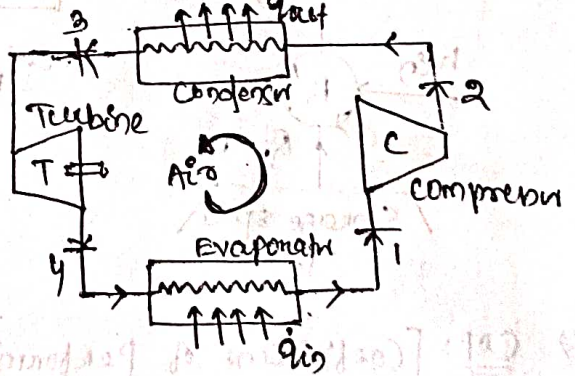 3
qout
Condensr
2
Turbine
T
Air
C
compressr
Evaporatr
1
4
qin